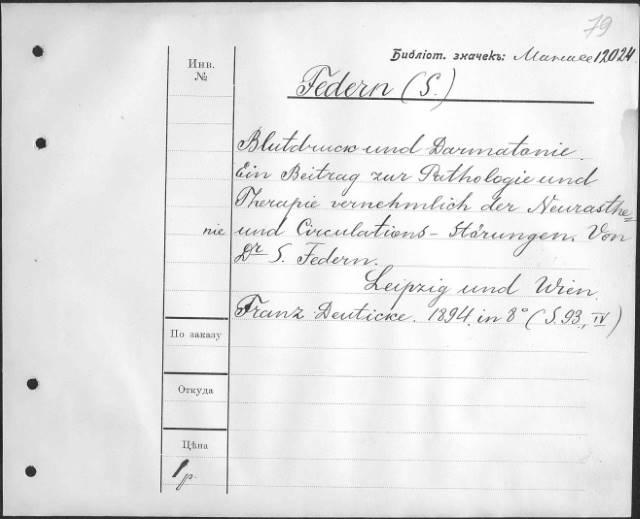 79
Библіот. значекъ: Манассе 12024.
Инв.
№
Federn (S.)
Blutdruck und Darmatonie.
Ein Beitrag zur Pathologie und
Therapie vernehmlich der Neurasthe=
nie und Circulations-Störungen. Von
Dr S. Federn.
Leipzig und Wien.
Franz Deuticke. 1894. in 8° (S. 93, IV)
По заказу
Откуда
Цѣна
1 р.